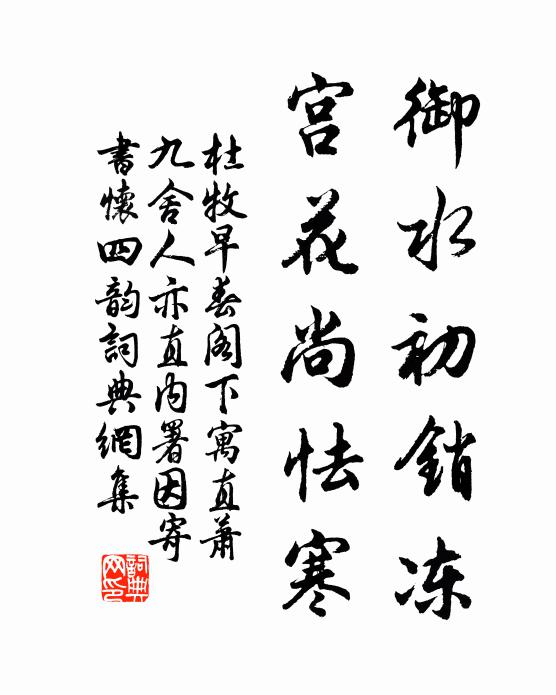 御水初銷冻
宫花尚怯寒
杜牧早春阁下寓直萧
九舍人亦直内署因寄
書懷四韵詞典網集
詞典网印